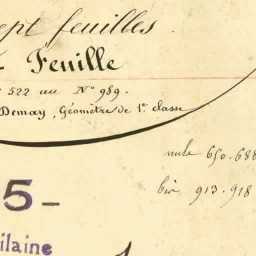 ept feuilles.
Feuille
522 au N° 989.
Demay, Géomètre de 1re classe
nule 650.688
bis 913.918
5-
ilaine